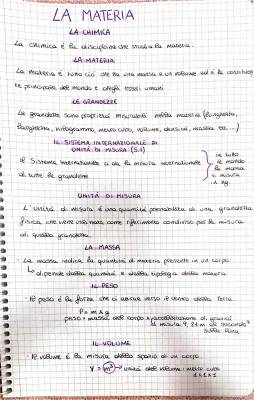 LA MATERIA
LA CHIMICA
La chimica è la disciplina che studia la materia.
LA MATERIA
La materia è tutto ciò che ha una massa e un volume ed è la costituen
te principale del mondo e degli esseri umani
LE GRANDEZZE
Le grandezze sono proprietà misurabili della materia (lunghezza,
larghezza, kilogrammo, metro cubo, volume, densità, massa ecc...)
IL SISTEMA INTERNAZIONALE DI
UNITÀ DI MISURA (S.I)
Il Sistema Internazionale ci dà la misura internazionale
di tutte le grandezze
in tutto
il mondo
la massa
si misura
in kg.
UNITÀ DI MISURA
L'unità di misura è una quantità prestabilita di una grandezza
fisica, che viene utilizzata come riferimento condiviso per la misura
di quella grandezza.
LA MASSA
La massa indica la quantità di materia presente in un corpo.
dipende dalla quantità e dalla tipologia della materia
IL PESO
Il peso è la forza che ci attrae verso il centro della Terra.
P = m x g
peso = massa del corpo x accelerazione di gravità
9,81 m al secondo²
sulla Terra
IL VOLUME
Il volume è la misura dello spazio di un corpo.
V = m³ → unità del volume: metro cubo
1x1x1